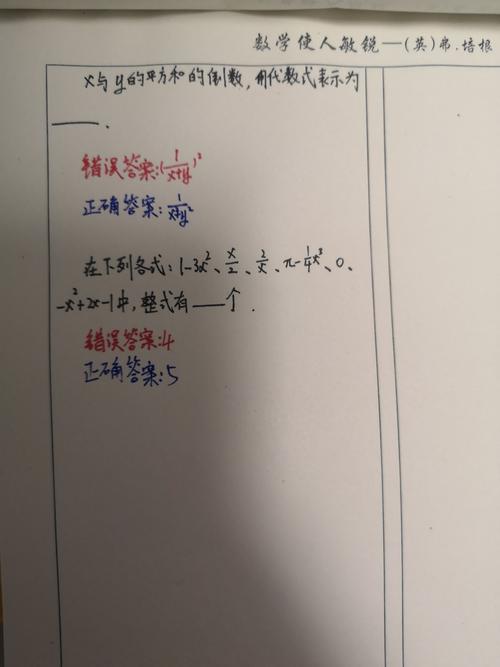 数学使人敏锐——(英)弗.培根
x与y的平方和的倒数,用代数式表示为
____.
错误答案:(1/(x+y))²
正确答案:1/(x+y²)
在下列各式:1-3x²、x/2、2/x、π-1/4x³、0、
-x²+2x-1中,整式有____个.
错误答案:4
正确答案:5